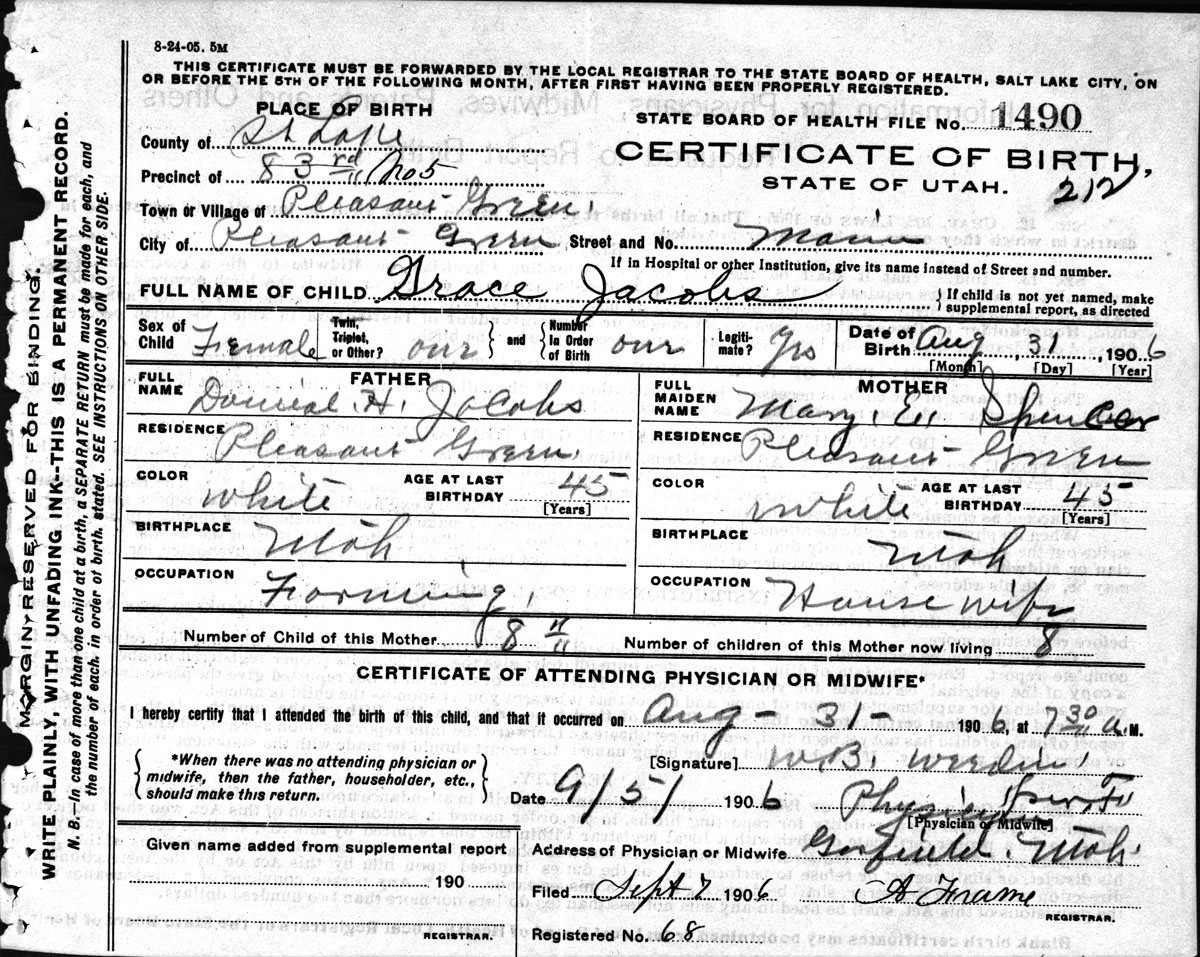 8-24-05. 5M
THIS CERTIFICATE MUST BE FORWARDED BY THE LOCAL REGISTRAR TO THE STATE BOARD OF HEALTH, SALT LAKE CITY, ON
OR BEFORE THE 5TH OF THE FOLLOWING MONTH, AFTER FIRST HAVING BEEN PROPERLY REGISTERED.
MARGIN RESERVED FOR BINDING.
WRITE PLAINLY, WITH UNFADING INK--THIS IS A PERMANENT RECORD.
N. B.--In case of more than one child at a birth, a SEPARATE RETURN must be made for each, and
the number of each, in order of birth, stated. SEE INSTRUCTIONS ON OTHER SIDE.
PLACE OF BIRTH
County of St Lake
Precinct of 83rd No 5
Town or Village of Pleasant Green.
City of Pleasant Green
STATE BOARD OF HEALTH FILE No. 1490
CERTIFICATE OF BIRTH,
STATE OF UTAH.
212
Street and No. Main
If in Hospital or other Institution, give its name instead of Street and number.
FULL NAME OF CHILD Grace Jacobs
If child is not yet named, make
supplemental report, as directed
Sex of Child Female Twin, Triplet, or Other? and Number In Order of Birth Legiti- mate? Yes Date of Birth Aug, 31, 1906
[Month] [Day] [Year]
FATHER
FULL NAME Daniel. H. Jacobs
RESIDENCE Pleasant Green
COLOR White AGE AT LAST BIRTHDAY 45
[Years]
BIRTHPLACE Utah
OCCUPATION Farming,
MOTHER
FULL MAIDEN NAME Mary. E. Spencer
RESIDENCE Pleasant Green
COLOR White AGE AT LAST BIRTHDAY 45
[Years]
BIRTHPLACE Utah
OCCUPATION House wife
Number of Child of this Mother 8 Number of children of this Mother now living 8
CERTIFICATE OF ATTENDING PHYSICIAN OR MIDWIFE*
I hereby certify that I attended the birth of this child, and that it occurred on Aug - 31 - 1906 at 7 30 a M.
*When there was no attending physician or
midwife, then the father, householder, etc.,
should make this return.
[Signature] W. B.
Date 9/5/ 1906
[Physician or Midwife]
Given name added from supplemental report
190
REGISTRAR.
Address of Physician or Midwife Garfield. Utah.
Filed Sept 7 1906 A Frame
REGISTRAR.
Registered No. 68